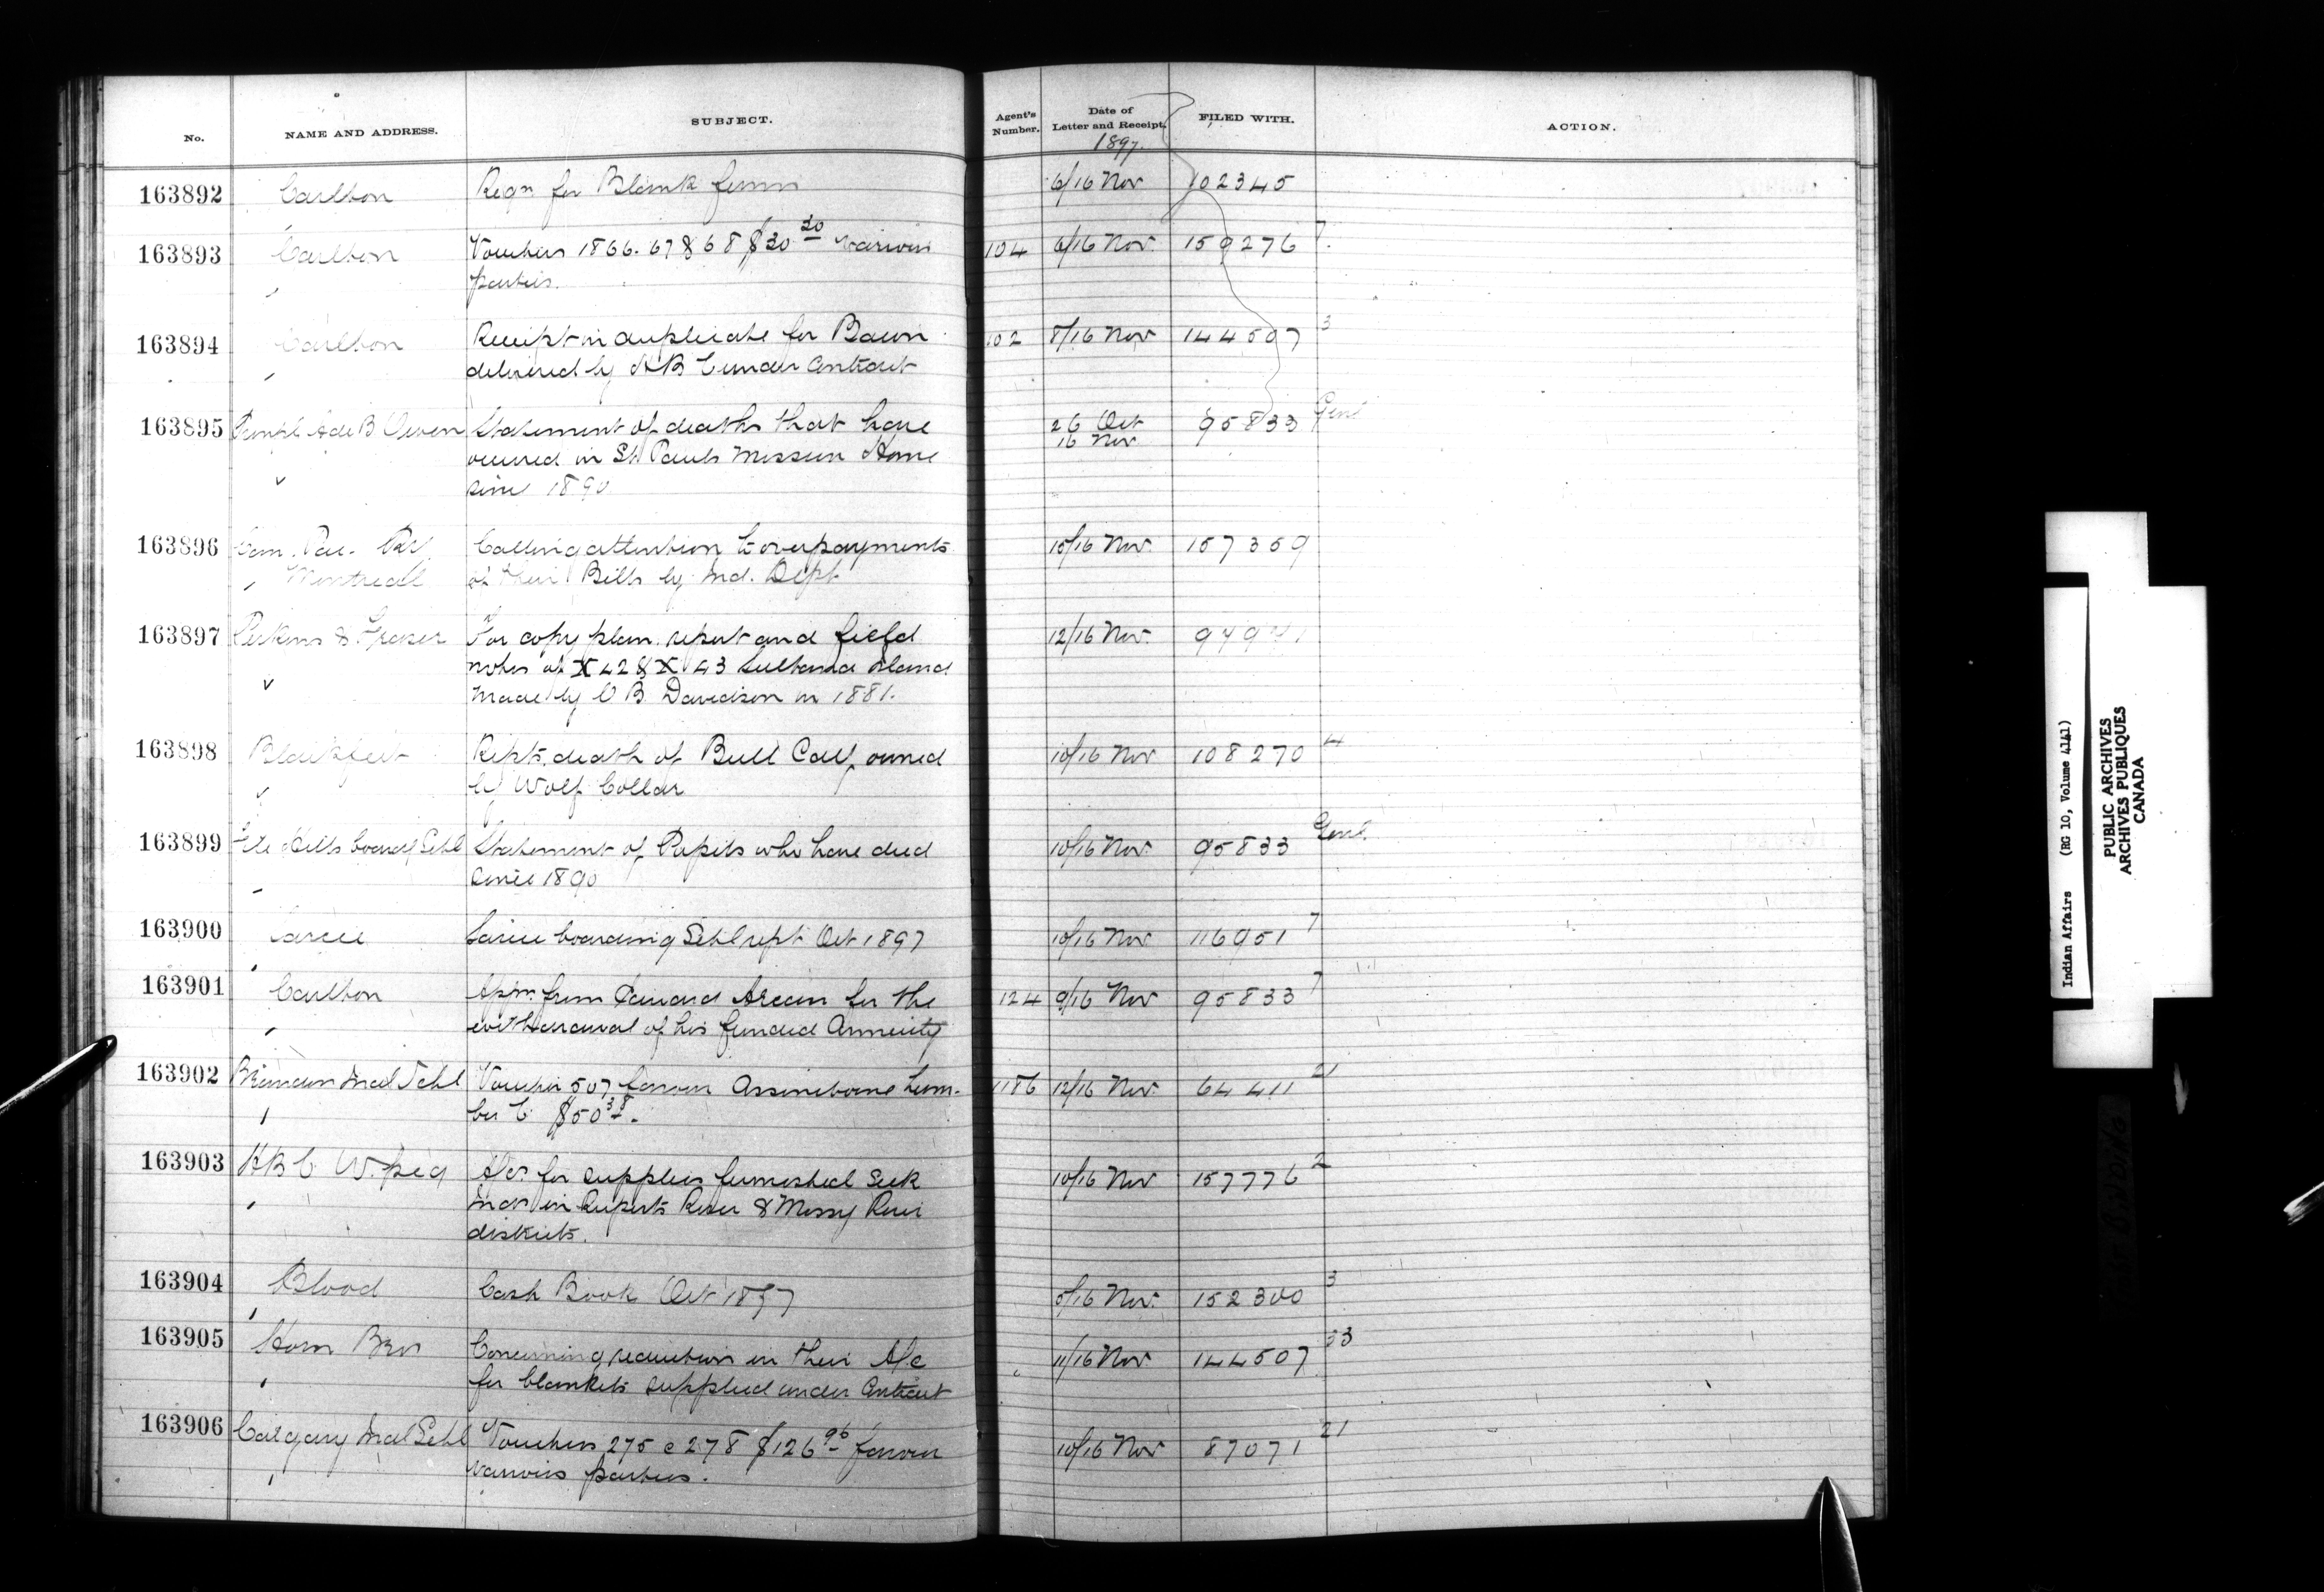 No.
NAME AND ADDRESS.
SUBJECT.
Agent's Number.
Date of Letter and Receipt.
1897.
FILED WITH.
ACTION.
163892 Carlton Reqn for Blank forms 6/16 Nov 102345
163893 Carlton Vouchers 1866. 67 & 68 $30 30 various 104 6/16 Nov. 159276 7
parties.
163894 Carlton Receipt in duplicate for Bacon 102 8/16 Nov 144507 3
delivered by HB C under Contract
163895 A de B Owen Statement of deaths that have 26 Oct 95833 Genl
16 Nov
occured in St Pauls Mission Home
since 1890
163896 Can. Pac. Ry Calling attention to overpayments 15/16 Nov. 157359
Montreal of their Bills by Ind. Dept
163897 Perkins & Fraser For copy plan, report and field 12/16 Nov.
notes of X 42 & X 43 Sultana Island
made by C B. Davidson in 1881.
163898 Blackfeet Repts death of Bull Calf owned 10/16 Nov 108270 4
by Wolf Collar
163899 File Hills board Schl Statement of Pupils who have died 10/16 Nov. 95833 Genl.
since 1890
163900 Sarcee Sarcee boarding Schl rept Oct 1897 10/16 Nov 116951 7
163901 Carlton Apln. from for the 124 9/16 Nov 95833 7
withdrawal of his funded Annuity
163902 Brandon Indl Schl Voucher 507 favour Assineboine Lum- 1186 12/16 Nov. 64411 21
ber C. $50 38.
163903 HBC W.peg A/cs for supplies furnished Sick 10/16 Nov 157776 2
Inds in Ruperts River & Mossy River
districts.
163904 Blood Cash Book Oct 1897 8/16 Nov. 152300 3
163905 Horn Bros Concerning reduction in their A/c 11/16 Nov 144507 33
for blankets supplied under Contract
163906 Calgary Indl Schl Vouchers 275 @ 278 $126 96 favour 10/16 Nov 87071 21
various parties.
Indian Affairs (RG 10, Volume 4141)
PUBLIC ARCHIVES
ARCHIVES PUBLIQUES
CANADA